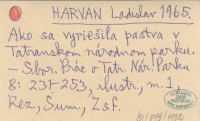 HARVAN Ladislav 1965.
Ako sa vyriešila pastva v
Tatranskom národnom parku.
– Sbor. Prác o Tatr. Nár. Parku
8: 231-253, ilustr., m. 1,
Rez., Sum., Zsf.